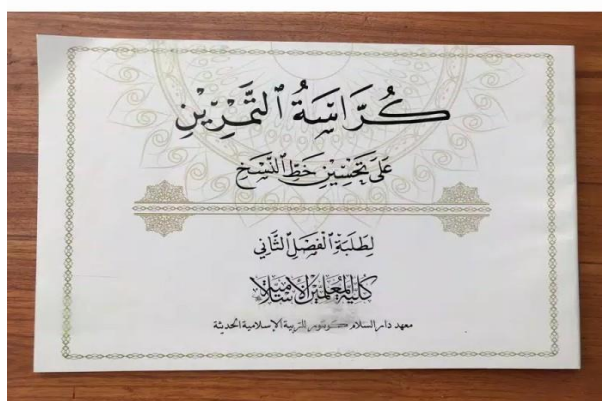 كُرَّاسَةُ ٱلتَّمْرِيْنِ
عَلَى تَحْسِيْنِ خَطِّ ٱلنَّسْخِ
لِطَلَبَةِ ٱلْفَصْلِ ٱلثَّانِي
كلية المعلمين الإسلامية
معهد دار السلام كونتور للتربية الإسلامية الحديثة